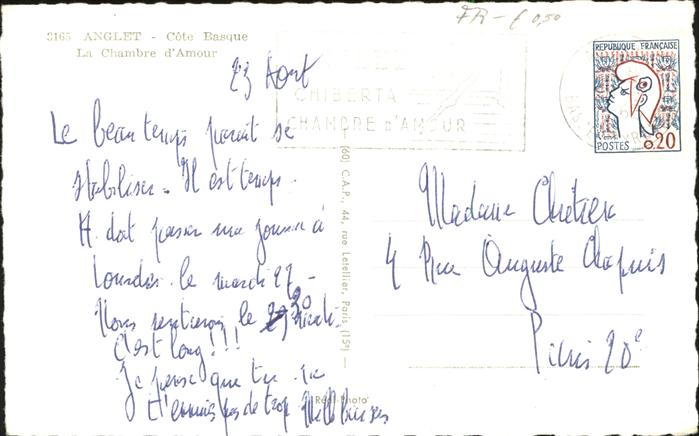 3165 ANGLET - Côte Basque
La Chambre d'Amour
FR - € 0,50
23 Aout
CHIBERTA
CHAMBRE D'AMOUR
REPUBLIQUE FRANÇAISE
POSTES 0.20
Le beau temps parait se
stabiliser. Il est temps.
H. doit passer une journée à
Lourdes le mardi 27 -
Nous rentrerons le 30
C'est long!!!
Je pense que tu ne
t'ennuis pas de trop Mille bises
(60) C.A.P., 44, rue Letellier, Paris (15e)
Réal-Photo
Madame
4 Rue Auguste Chapuis
Paris 20e